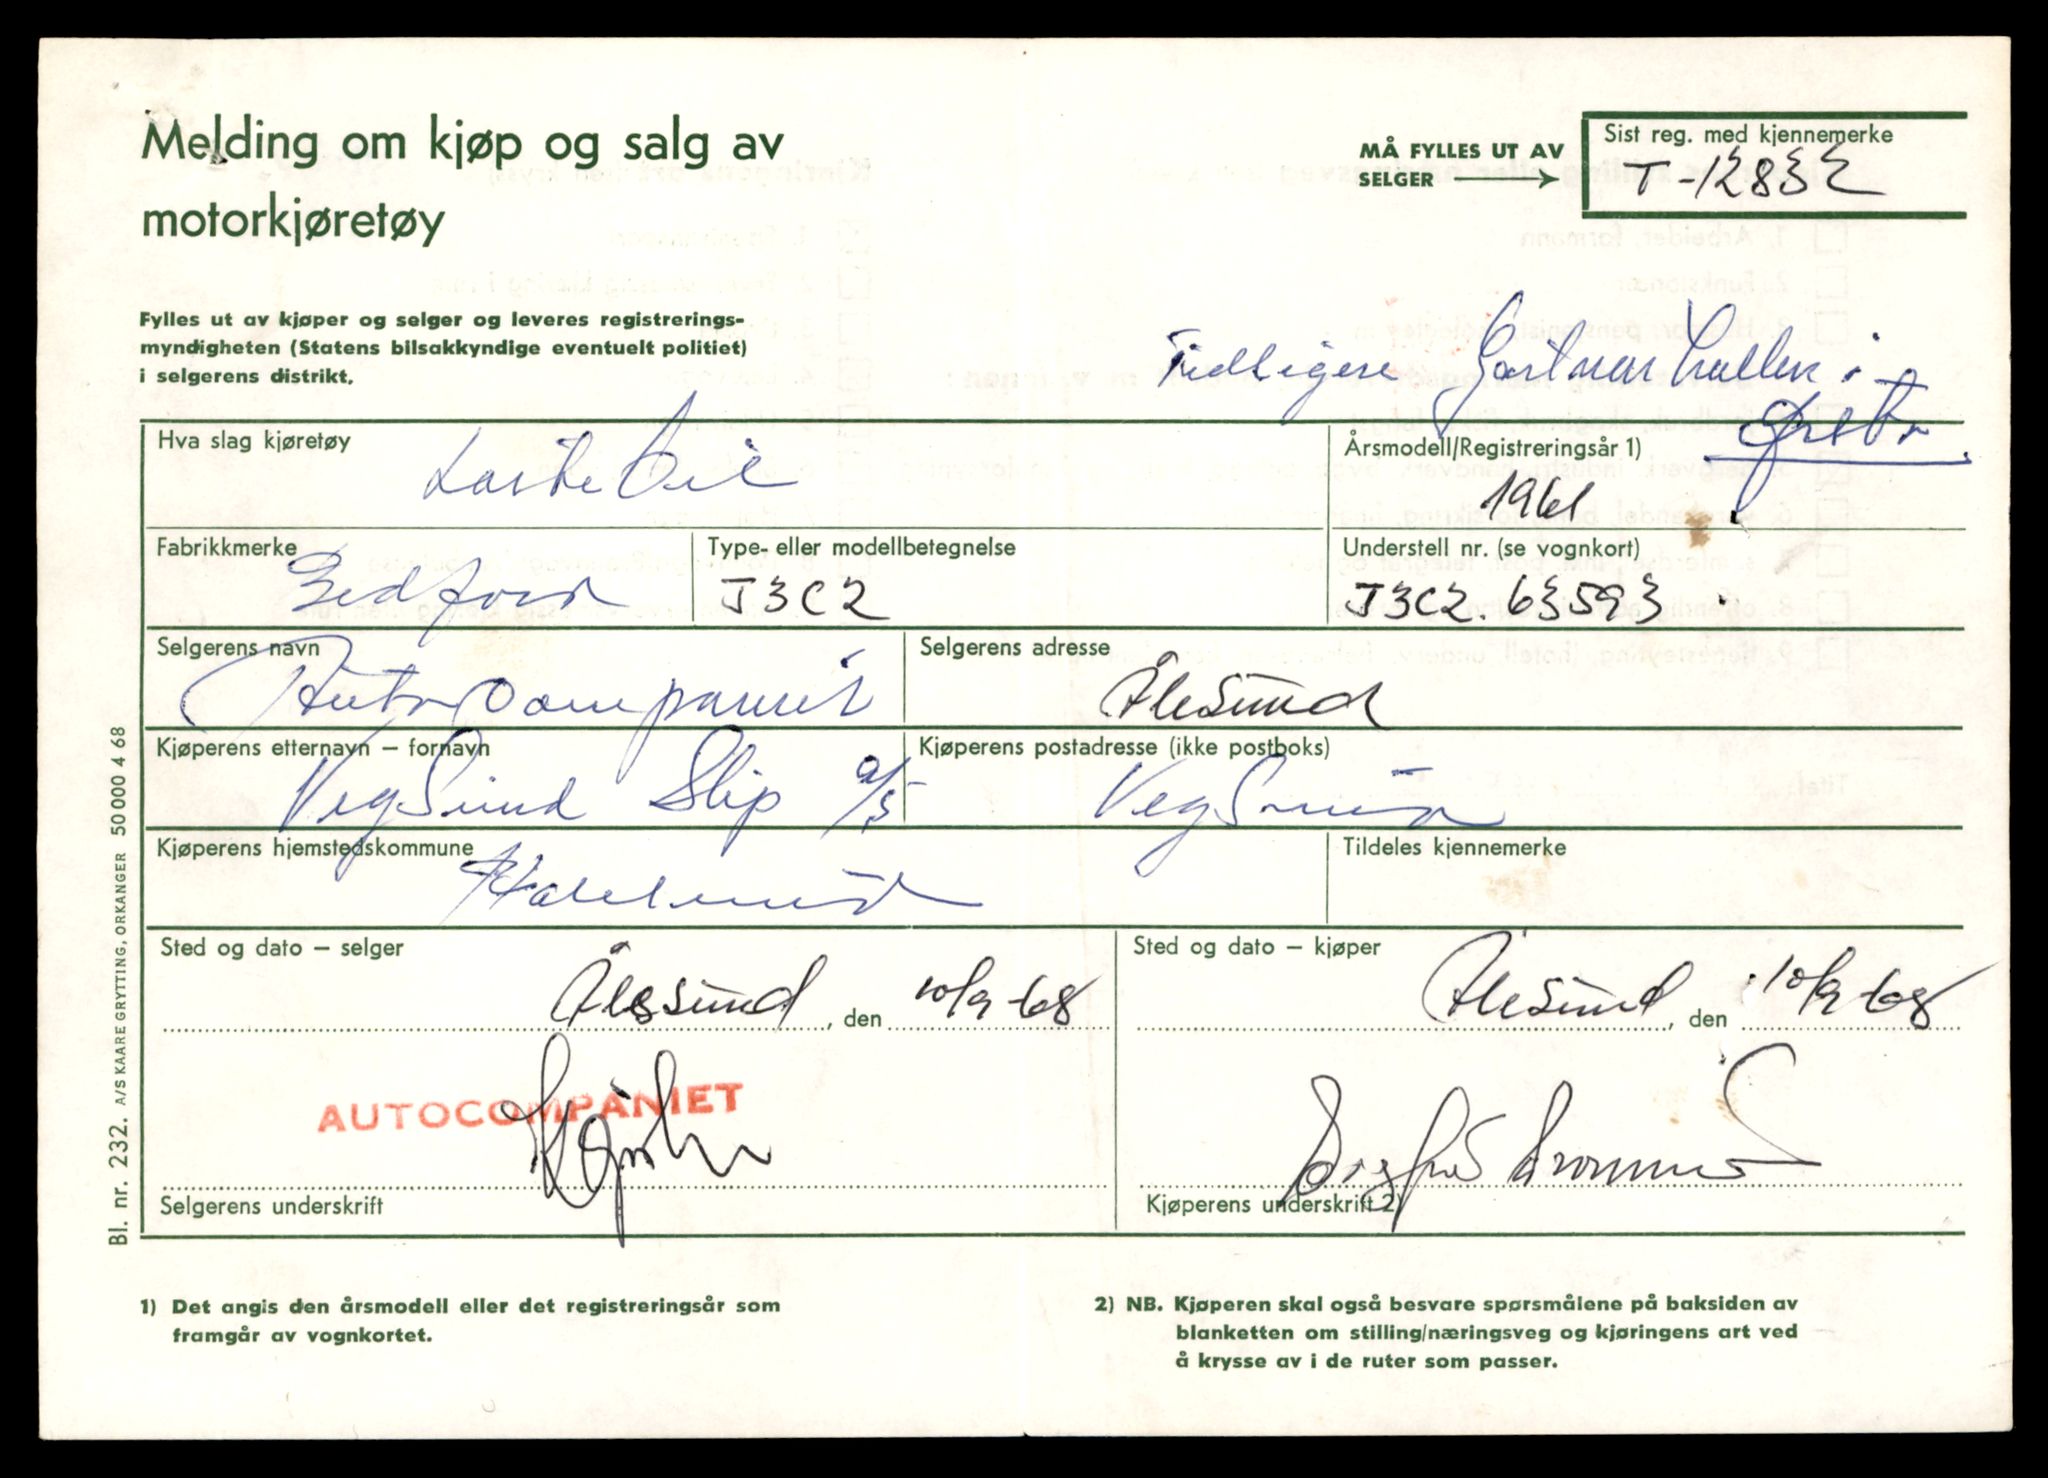 Melding om kjøp og salg av
motorkjøretøy
MÅ FYLLES UT AV
SELGER
Sist reg. med kjennemerke
T-12832
Fylles ut av kjøper og selger og leveres registrerings-
myndigheten (Statens bilsakkyndige eventuelt politiet)
i selgerens distrikt.
Tidligere Gartnerhallen i
Ørsta
Hva slag kjøretøy
Laste bil
Årsmodell/Registreringsår 1)
1961
Fabrikkmerke
Bedford
Type- eller modellbetegnelse
J3C2
Understell nr. (se vognkort)
J3C2.63593
Selgerens navn
Autocompaniet
Selgerens adresse
Ålesund
Kjøperens etternavn – fornavn
Vegsund Slip a/s
Kjøperens postadresse (ikke postboks)
Vegsund
Kjøperens hjemstedskommune
Tildeles kjennemerke
Sted og dato – selger
Ålesund, den 10/9-68
Sted og dato – kjøper
Ålesund, den 10/9-68
AUTOCOMPANIET
Selgerens underskrift
Kjøperens underskrift 2)
1) Det angis den årsmodell eller det registreringsår som
framgår av vognkortet.
2) NB. Kjøperen skal også besvare spørsmålene på baksiden av
blanketten om stilling/næringsveg og kjøringens art ved
å krysse av i de ruter som passer.
Bl. nr. 232. A/S KAARE GRYTTING, ORKANGER 50 000 4 68